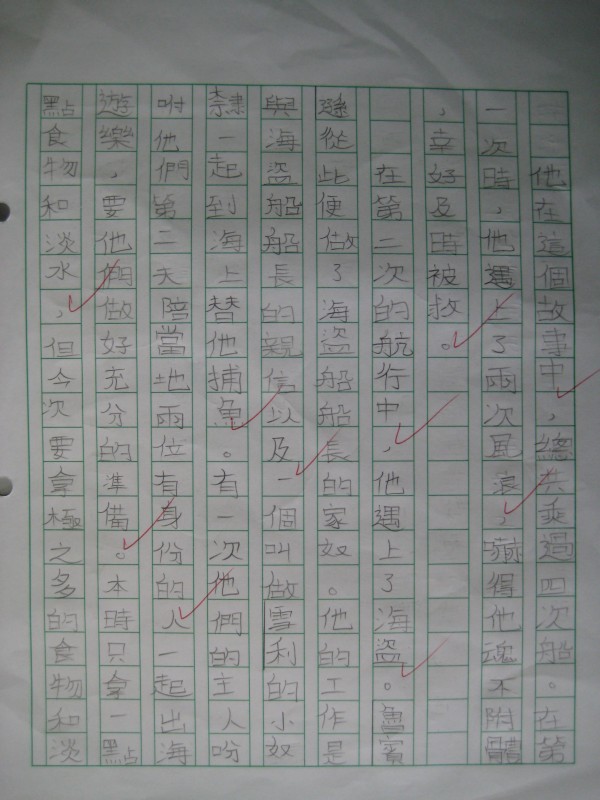 他在這個故事中，總共乘過四次船。在第
一次時，他遇上了兩次風浪，嚇得他魂不附體
，幸好及時被救。
在第二次的航行中，他遇上了海盜。魯賓
遜從此便做了海盜船船長的家奴。他的工作是
與海盜船船長的親信以及一個叫做雪利的小奴
隸一起到海上替他捕魚。有一次他們的主人吩
咐他們第二天陪當地兩位有身份的人一起出海
遊樂，要他們做好充分的準備。本時只拿一點
點食物和淡水，但今次要拿極之多的食物和淡